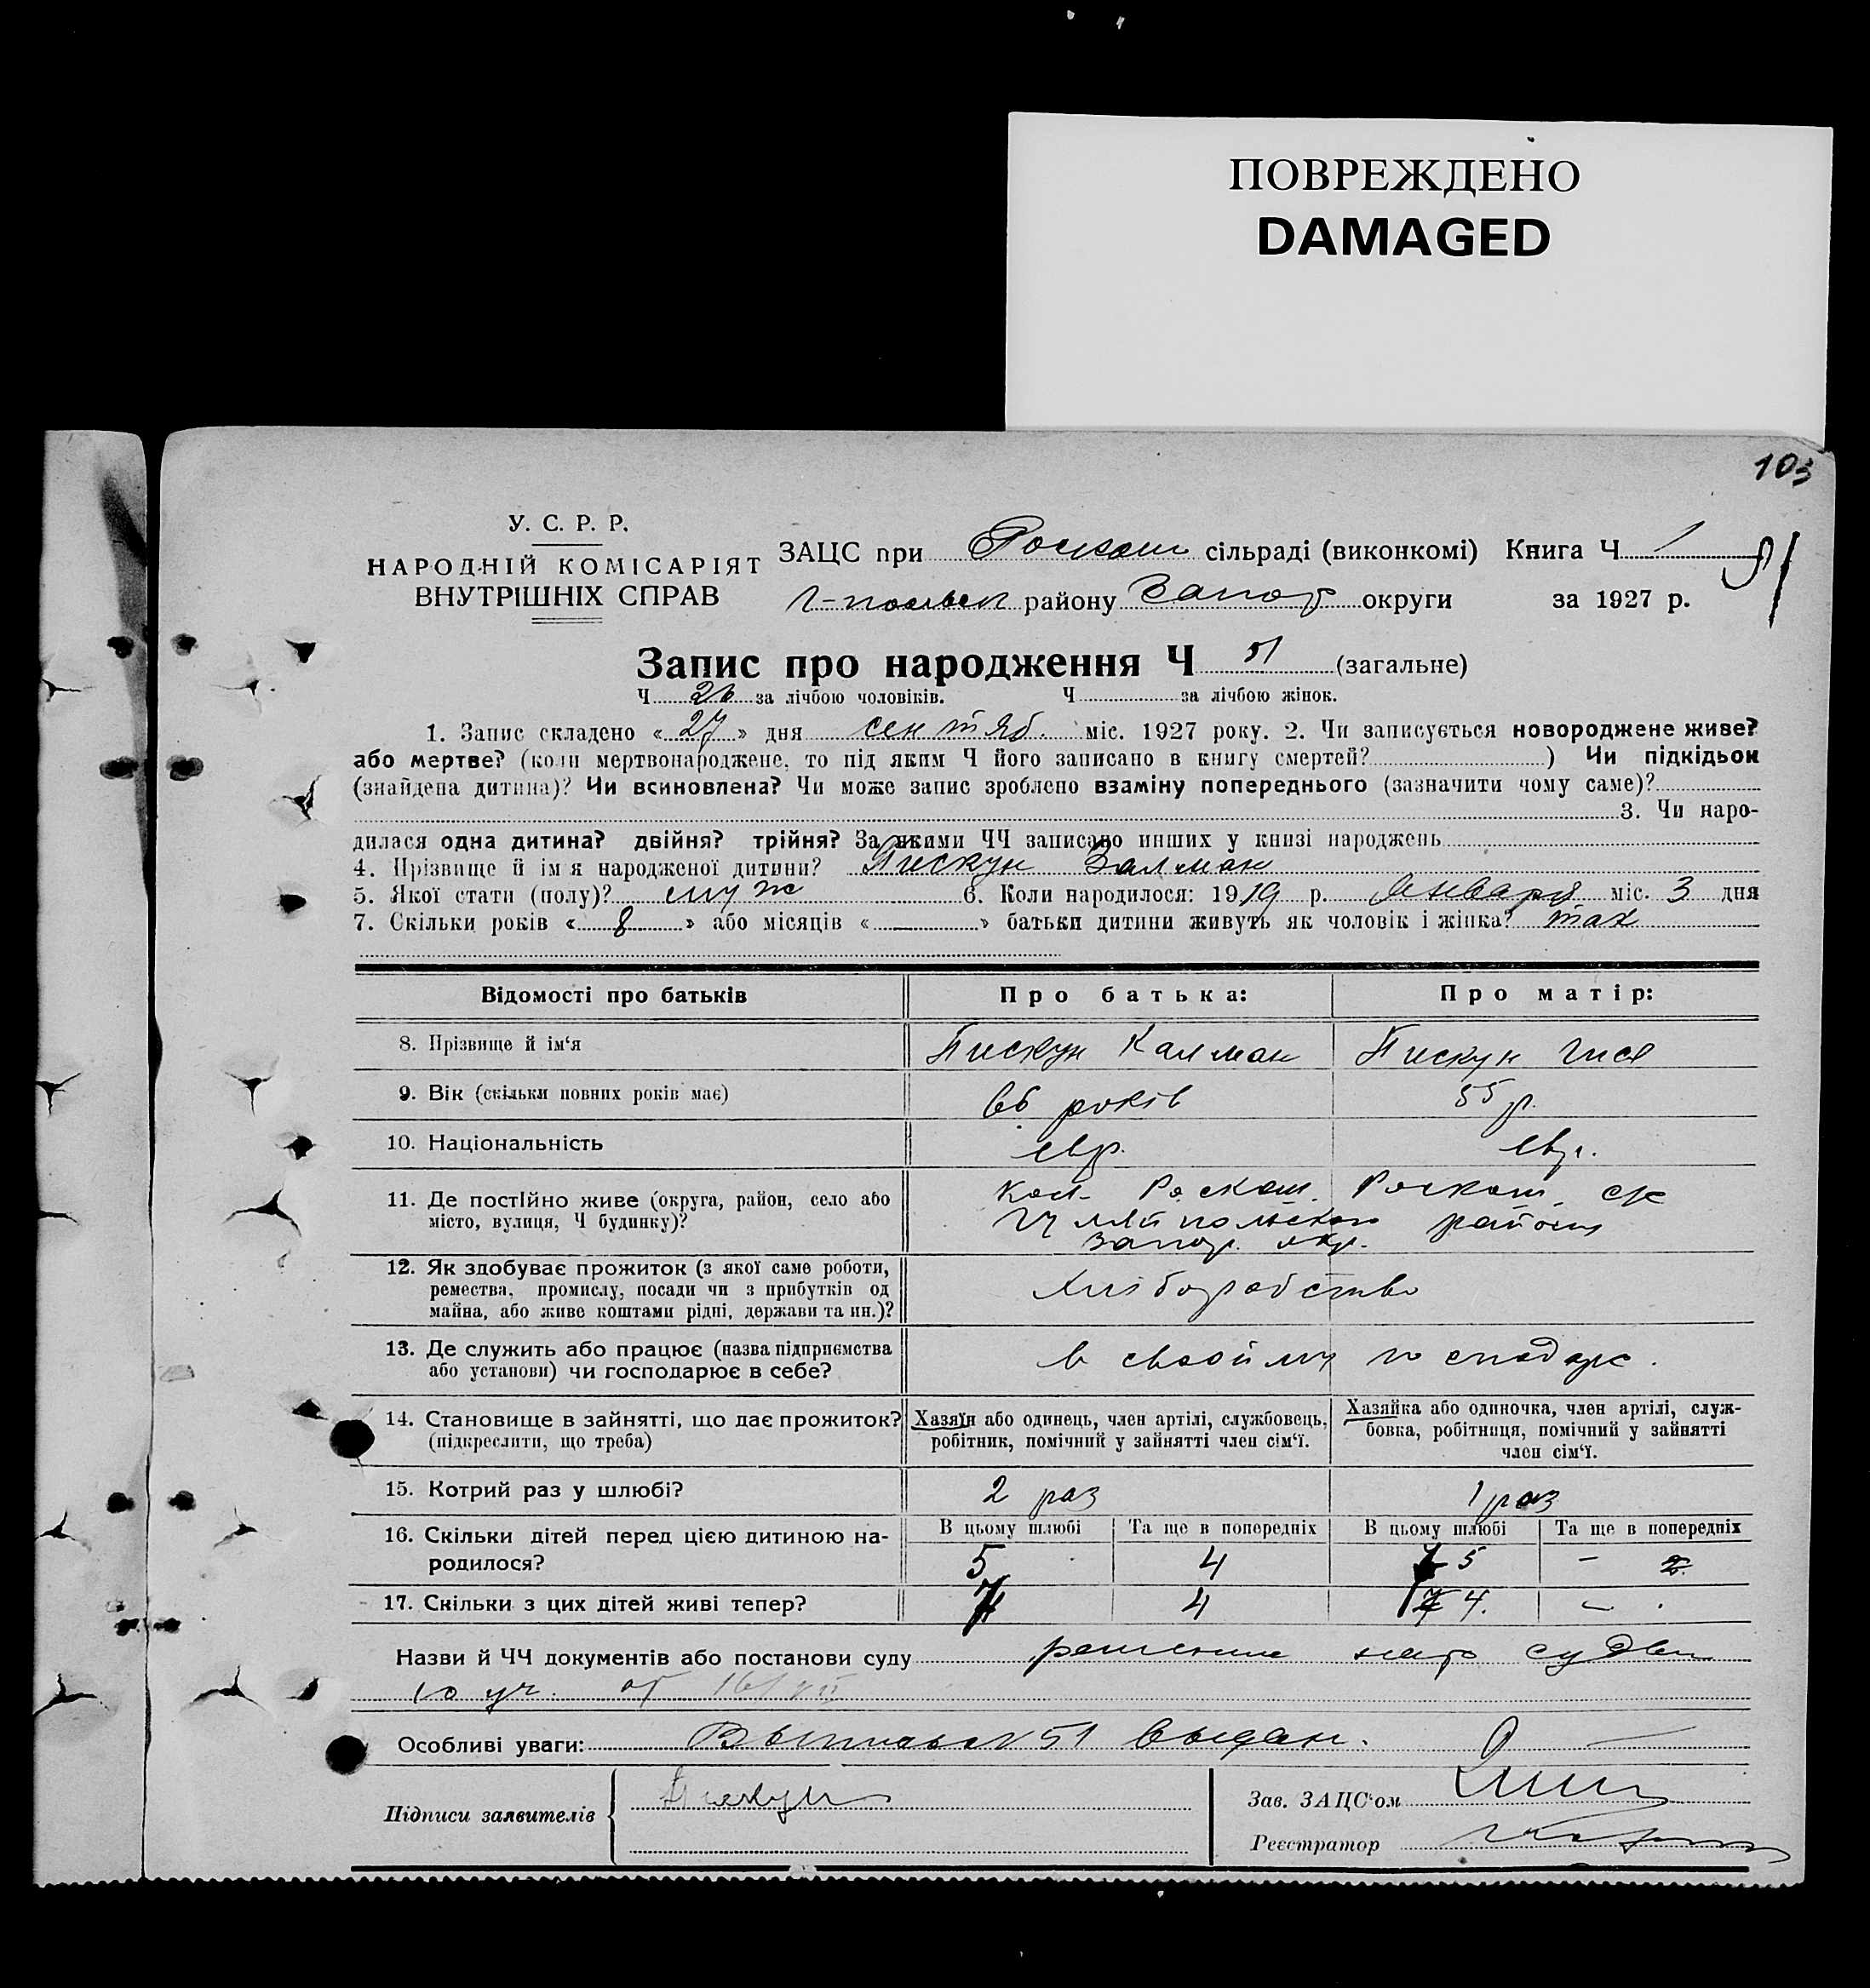 ПОВРЕЖДЕНО
DAMAGED
103
У. С. Р. Р.
НАРОДНІЙ КОМІСАРІЯТ
ВНУТРІШНІХ СПРАВ
ЗАЦС при Роскош сільраді (виконкомі) Книга Ч 1
району Запор округи за 1927 р.
51
Запис про народження Ч 51 (загальне)
Ч 26 за лічбою чоловіків. Ч за лічбою жінок.
1. Запис складено « 27 » дня сентяб. міс. 1927 року. 2. Чи записується новороджене живе?
або мертве? (коли мертвонароджене, то під яким Ч його записано в книгу смертей? ) Чи підкідьок
(знайдена дитина)? Чи всиновлена? Чи може запис зроблено взаміну попереднього (зазначити чому саме)?
3. Чи наро-
дилася одна дитина? двійня? трійня? За якими ЧЧ записано инших у книзі народжень
4. Прізвище й ім'я народженої дитини? Пискун Залман
5. Якої стати (полу)? муж 6. Коли народилося: 1919 р. Января міс. 3 дня
7. Скільки років « 8 » або місяців « — » батьки дитини живуть як чоловік і жінка? так
Відомості про батьків Про батька: Про матір:
8. Прізвище й ім'я Пискун Калман Пискун Гися
9. Вік (скільки повних років має) 66 років 55 р.
10. Національність евр. евр.
11. Де постійно живе (округа, район, село або
місто, вулиця, Ч будинку)?
Кол. Роскош. Роскош. с/с
Гуляйпольского района
Запор. окр.
12. Як здобуває прожиток (з якої саме роботи,
ремества, промислу, посади чи з прибутків од
майна, або живе коштами рідні, держави та ин.)?
Хліборобство
13. Де служить або працює (назва підприємства
або установи) чи господарює в себе?
в своойму господарс.
14. Становище в зайнятті, що дає прожиток?
(підкреслити, що треба)
Хазяїн або одинець, член артілі, службовець,
робітник, помічний у зайнятті член сім'ї.
Хазяйка або одиночка, член артілі, служ-
бовка, робітниця, помічний у зайнятті
член сім'ї.
15. Котрий раз у шлюбі? 2 раз 1 раз
16. Скільки дітей перед цією дитиною на-
родилося?
В цьому шлюбі Та ще в попередніх В цьому шлюбі Та ще в попередніх
5 4 5 –
17. Скільки з цих дітей живі тепер? 4 4 4. –
Назви й ЧЧ документів або постанови суду решение нар судьи
10 уч. от 16/VII
Особливі уваги: Выпись № 51 выдан.
Підписи заявителів Пискун
Зав. ЗАЦС'ом
Реєстратор